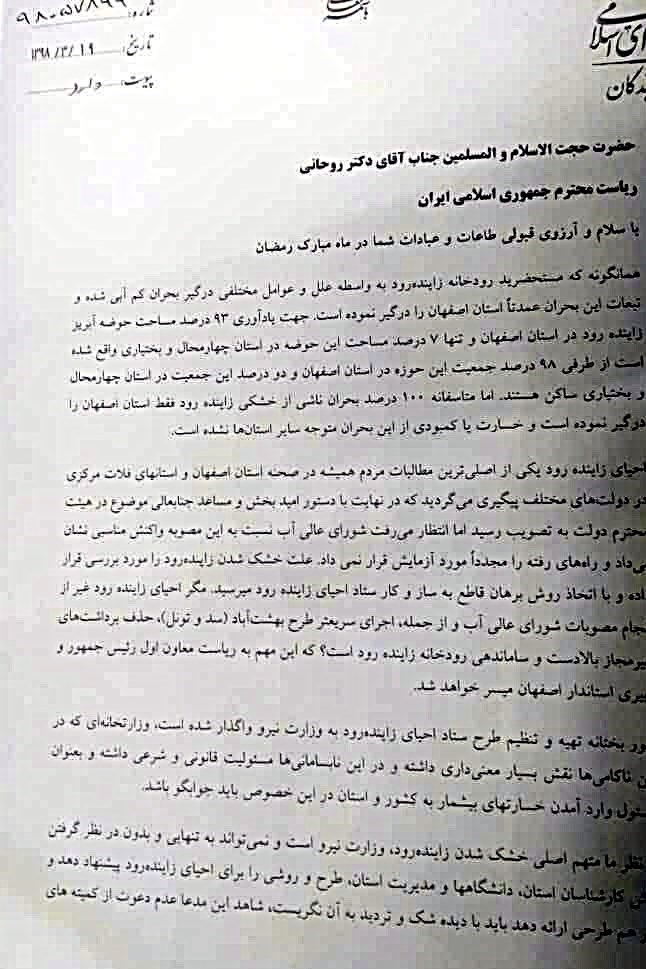 باسمه تعالی
شماره:
تاریخ: ۱۳۹۸/۳/۱۹
پیوست: دارد
ای اسلامی
حضرت حجت الاسلام و المسلمین جناب آقای دکتر روحانی
ریاست محترم جمهوری اسلامی ایران
با سلام و آرزوی قبولی طاعات و عبادات شما در ماه مبارک رمضان
همانگونه که مستحضرید رودخانه زاینده‌رود به واسطه علل و عوامل مختلفی درگیر بحران کم آبی شده و
تبعات این بحران عمدتاً استان اصفهان را درگیر نموده است. جهت یادآوری ۹۳ درصد مساحت حوضه آبریز
زاینده رود در استان اصفهان و تنها ۷ درصد مساحت این حوضه در استان چهارمحال و بختیاری واقع شده
است از طرفی ۹۸ درصد جمعیت این حوزه در استان اصفهان و دو درصد این جمعیت در استان چهارمحال
و بختیاری ساکن هستند. اما متاسفانه ۱۰۰ درصد بحران ناشی از خشکی زاینده رود فقط استان اصفهان را
درگیر نموده است و خسارت یا کمبودی از این بحران متوجه سایر استان‌ها نشده است.
احیای زاینده رود یکی از اصلی‌ترین مطالبات مردم همیشه در صحنه استان اصفهان و استانهای فلات مرکزی
در دولت‌های مختلف پیگیری می‌گردید که در نهایت با دستور امید بخش و مساعد جنابعالی موضوع در هیئت
محترم دولت به تصویب رسید اما انتظار می‌رفت شورای عالی آب نسبت به این مصوبه واکنش مناسبی نشان
می‌داد و راه‌های رفته را مجدداً مورد آزمایش قرار نمی داد. علت خشک شدن زاینده‌رود را مورد بررسی قرار
داده و با اتخاذ روش برهان قاطع به ساز و کار ستاد احیای زاینده رود میرسید. مگر احیای زاینده رود غیر از
انجام مصوبات شورای عالی آب و از جمله، اجرای سریعتر طرح بهشت‌آباد (سد و تونل)، حذف برداشت‌های
غیرمجاز بالادست و ساماندهی رودخانه زاینده رود است؟ که این مهم به ریاست معاون اول رئیس جمهور و
استاندار اصفهان میسر خواهد شد.
بختانه تهیه و تنظیم طرح ستاد احیای زاینده‌رود به وزارت نیرو واگذار شده است، وزارتخانه‌ای که در
ناکامی‌ها نقش بسیار معنی‌داری داشته و در این نابسامانی‌ها مسئولیت قانونی و شرعی داشته و بعنوان
مسئول وارد آمدن خسارتهای بیشمار به کشور و استان در این خصوص باید جوابگو باشد.
نظر ما متهم اصلی خشک شدن زاینده‌رود، وزارت نیرو است و نمی‌تواند به تنهایی و بدون در نظر گرفتن
کارشناسان استان، دانشگاهها و مدیریت استان، طرح و روشی را برای احیای زاینده‌رود پیشنهاد دهد و
هم طرحی ارائه دهد باید با دیده شک و تردید به آن نگریست، شاهد این مدعا عدم دعوت از کمیته های